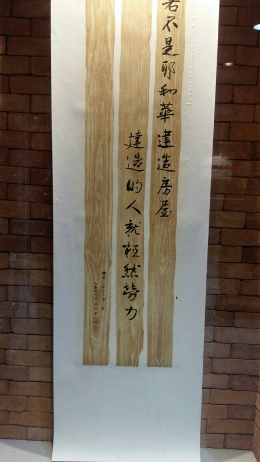 若不是耶和華建造房屋
建造的人就枉然勞力